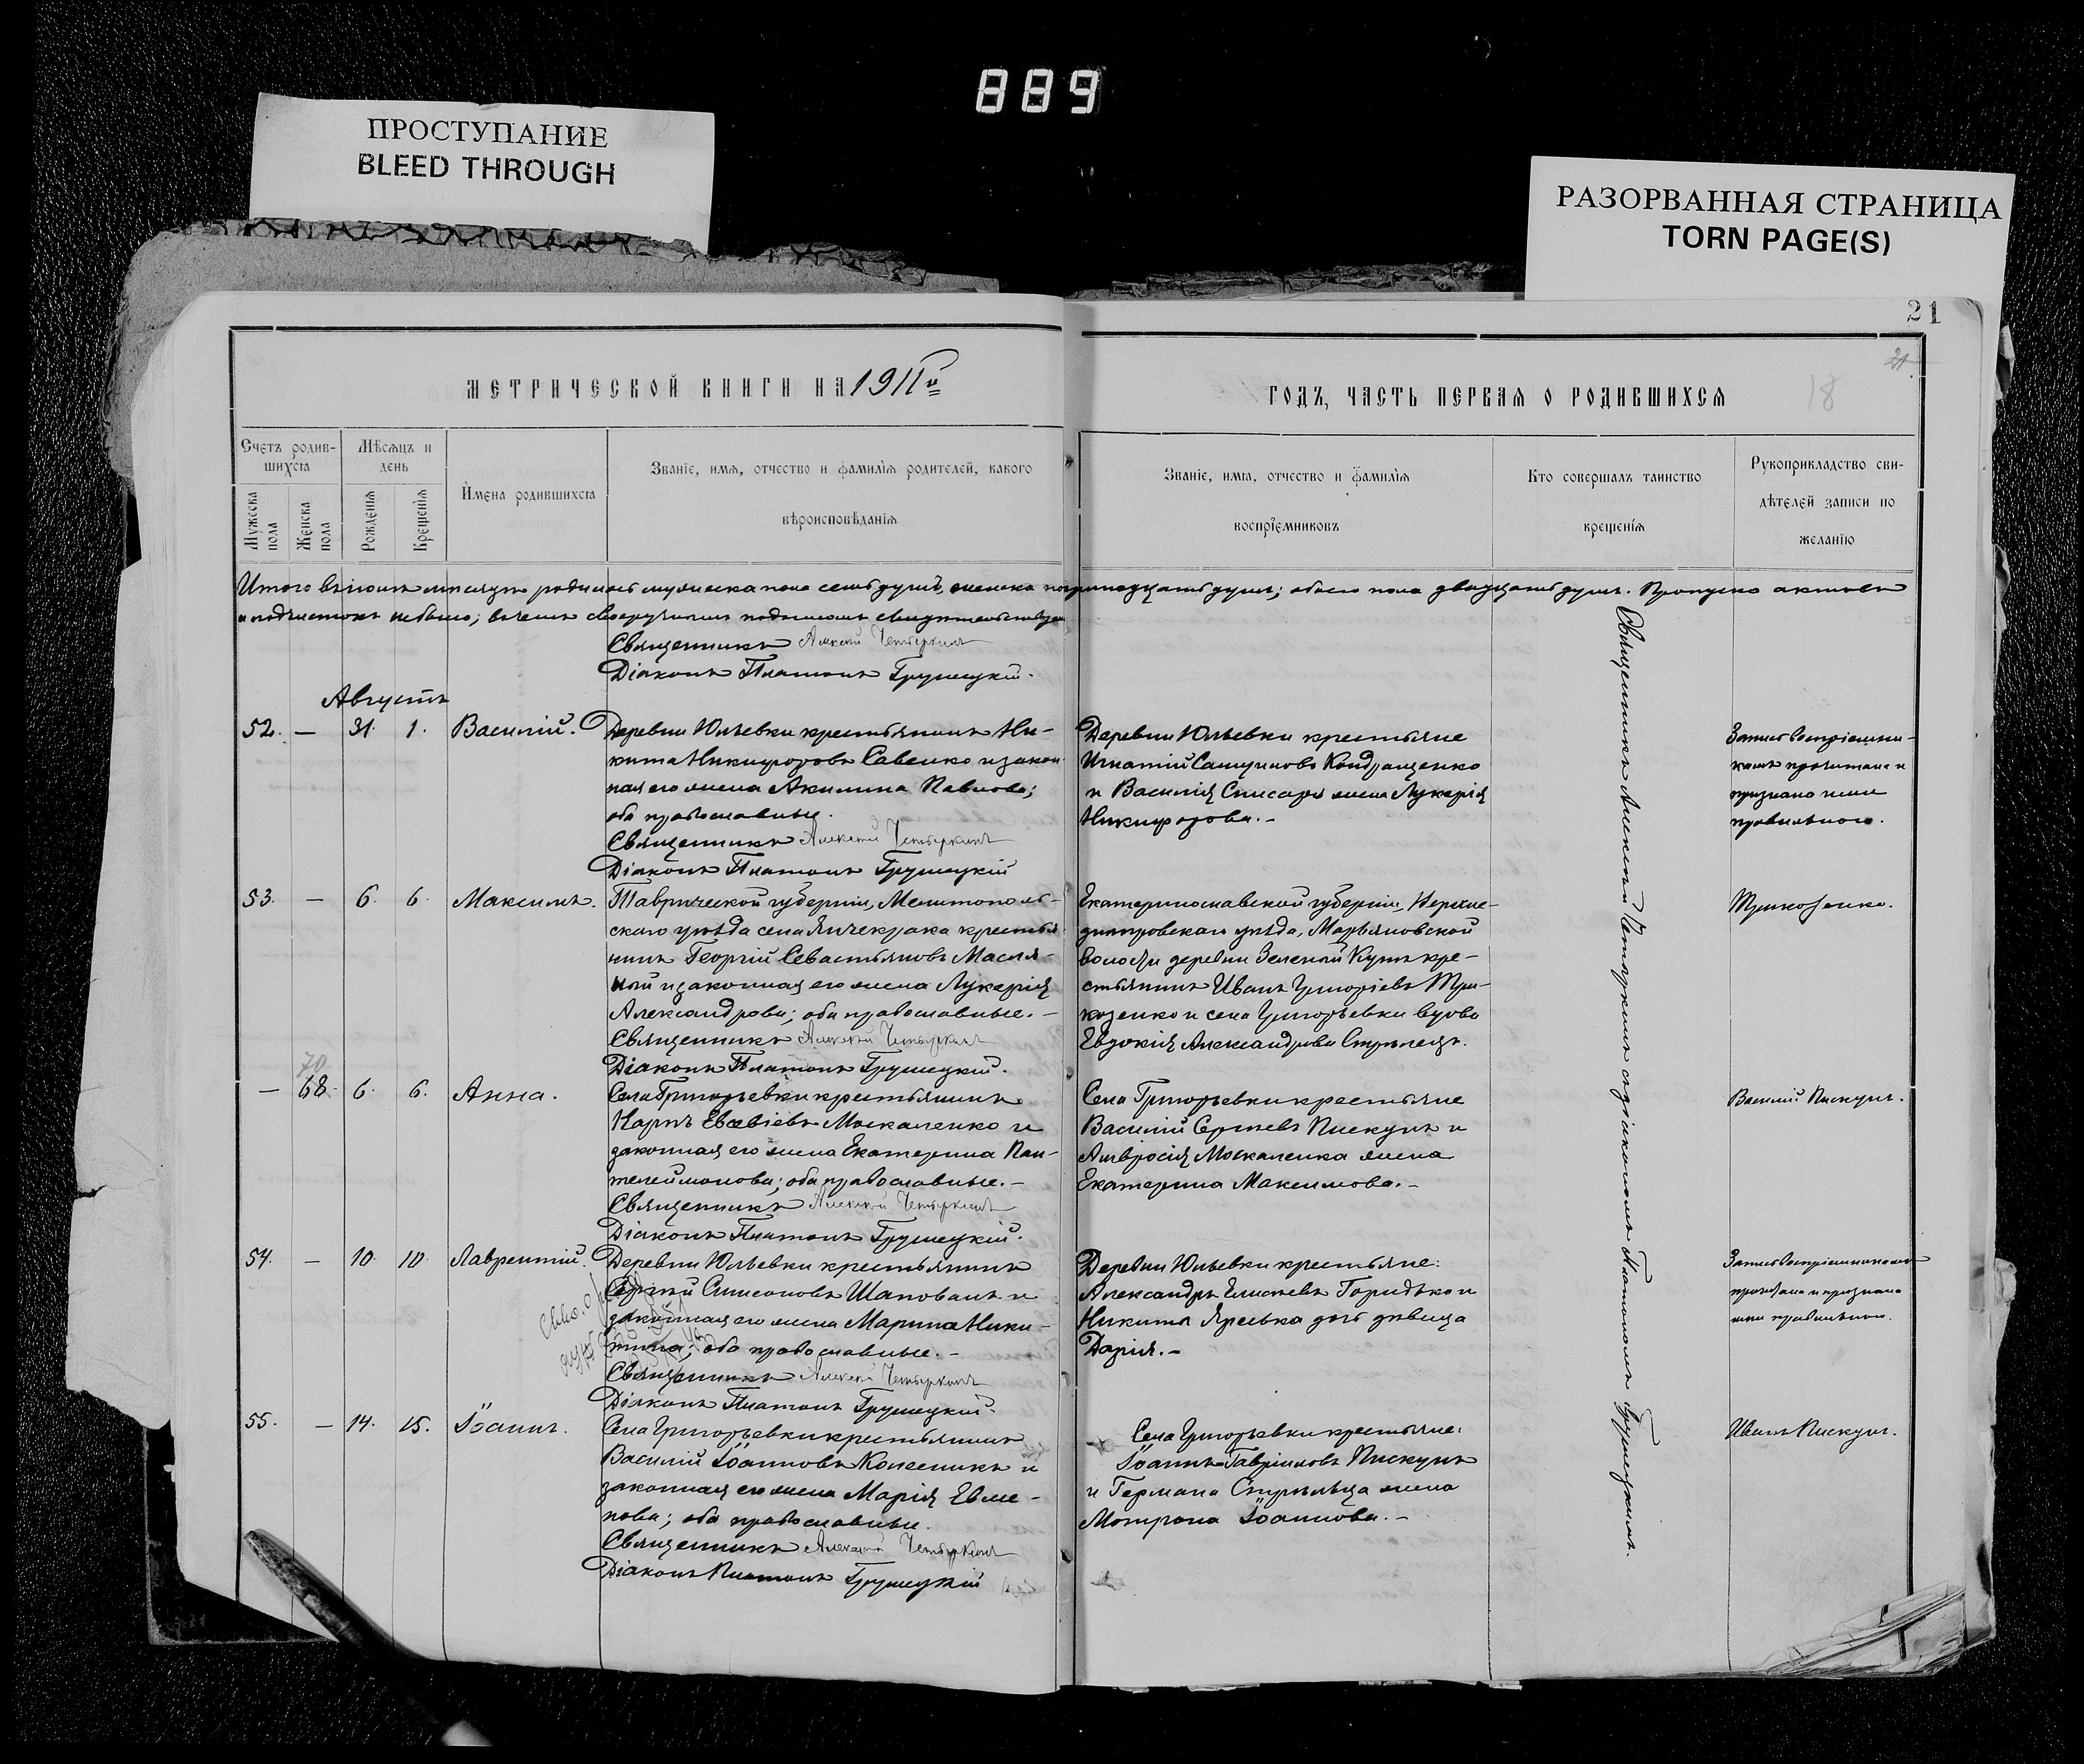 889
ПРОСТУПАНИЕ
BLEED THROUGH
РАЗОРВАННАЯ СТРАНИЦА
TORN PAGE(S)
21
21
18
МЕТРИЧЕСКОЙ КНИГИ НА 1911й
ГОДЪ, ЧАСТЬ ПЕРВАЯ О РОДИВШИХСЯ
Счетъ родив-
шихся
Мужеска пола
Женска пола
Мѣсяцъ и
день
Рожденія
Крещенія
Имена родившихся
Званіе, имя, отчество и фамилія родителей, какого
вѣроисповѣданія
Званіе, имя, отчество и фамилія
воспріемниковъ
Кто совершалъ таинство
крещенія
Рукоприкладство сви-
дѣтелей записи по
желанію
Итого въ іюлѣ мѣсяцѣ родилось мужеска пола семь душъ, женска тринадцать душъ; обоего пола двадцать душъ. Пропуска актовъ
и подчистокъ не было; въ чемъ своеручнымъ подписомъ свидѣтельствуемъ
Священникъ Алексій Четыркинъ
Діаконъ Платонъ Грушецкій.
Августъ
52. — 31. 1. Василій.
Деревни Юльевки крестьянинъ Ни-
кита Никифоровъ Савенко и закон-
ная его жена Акилина Павлова;
оба православные.
Священникъ Алексій Четыркинъ
Діаконъ Платонъ Грушецкій
Деревни Юльевки крестьяне
Игнатій Кондращенко
и Василія жена Лукерія
Никифорова.-
Запись воспріемни-
камъ прочитана и
признана ими
правильною.
53. — 6. 6. Максимъ.
Таврической губерніи, Мелитополь-
скаго уѣзда села Янчекрака крестья-
нинъ Георгій Севастьяновъ Масля-
ный и законная его жена Лукерія
Александрова; оба православные.-
Священникъ Алексій Четыркинъ
Діаконъ Платонъ Грушецкій.
Екатеринославской губерніи, Верхне-
днѣпровскаго уѣзда, Марьяновской
волости деревни Зеленый Кутъ кре-
стьянинъ Иванъ Григоріевъ Три-
козенко и села Григорьевки вдова
Евдокія Александрова Стрѣлецъ.
Трикозенко.
70
— 68. 6. 6. Анна.
Села Григорьевки крестьянинъ
Карпъ Евсевіевъ Москаленко и
законная его жена Екатерина Пан-
телеймонова; оба православные.-
Священникъ Алексій Четыркинъ
Діаконъ Платонъ Грушецкій.
Села Григорьевки крестьяне
Василій Сергѣевъ Пискунъ и
Амвросія Москаленка жена
Екатерина Максимова.-
Василій Пискунъ.
54. — 10. 10. Лаврентій.
Деревни Юльевки крестьянинъ
Сергій Симеоновъ Шаповалъ и
законная его жена Марина Ники-
тина; оба православные.-
Священникъ Алексій Четыркинъ
Діаконъ Платонъ Грушецкій.
Деревни Юльевки крестьяне:
Александръ Елисѣевъ Горидько и
Никиты дочь дѣвица
Дарія.-
Запись воспріемникамъ
прочитана и признана
ими правильною.
55. — 14. 15. Іоаннъ.
Села Григорьевки крестьянинъ
Василій Іоанновъ Колесникъ и
законная его жена Марія Евме-
нова; оба православные.
Священникъ Алексій Четыркинъ
Діаконъ Платонъ Грушецкій
Села Григорьевки крестьяне:
Іоаннъ Гавріиловъ Пискунъ
и Германа Стрѣльца жена
Мотрона Іоаннова.-
Иванъ Пискунъ.
Священникъ Алексій Четыркинъ съ діакономъ Платономъ Грушецкимъ.